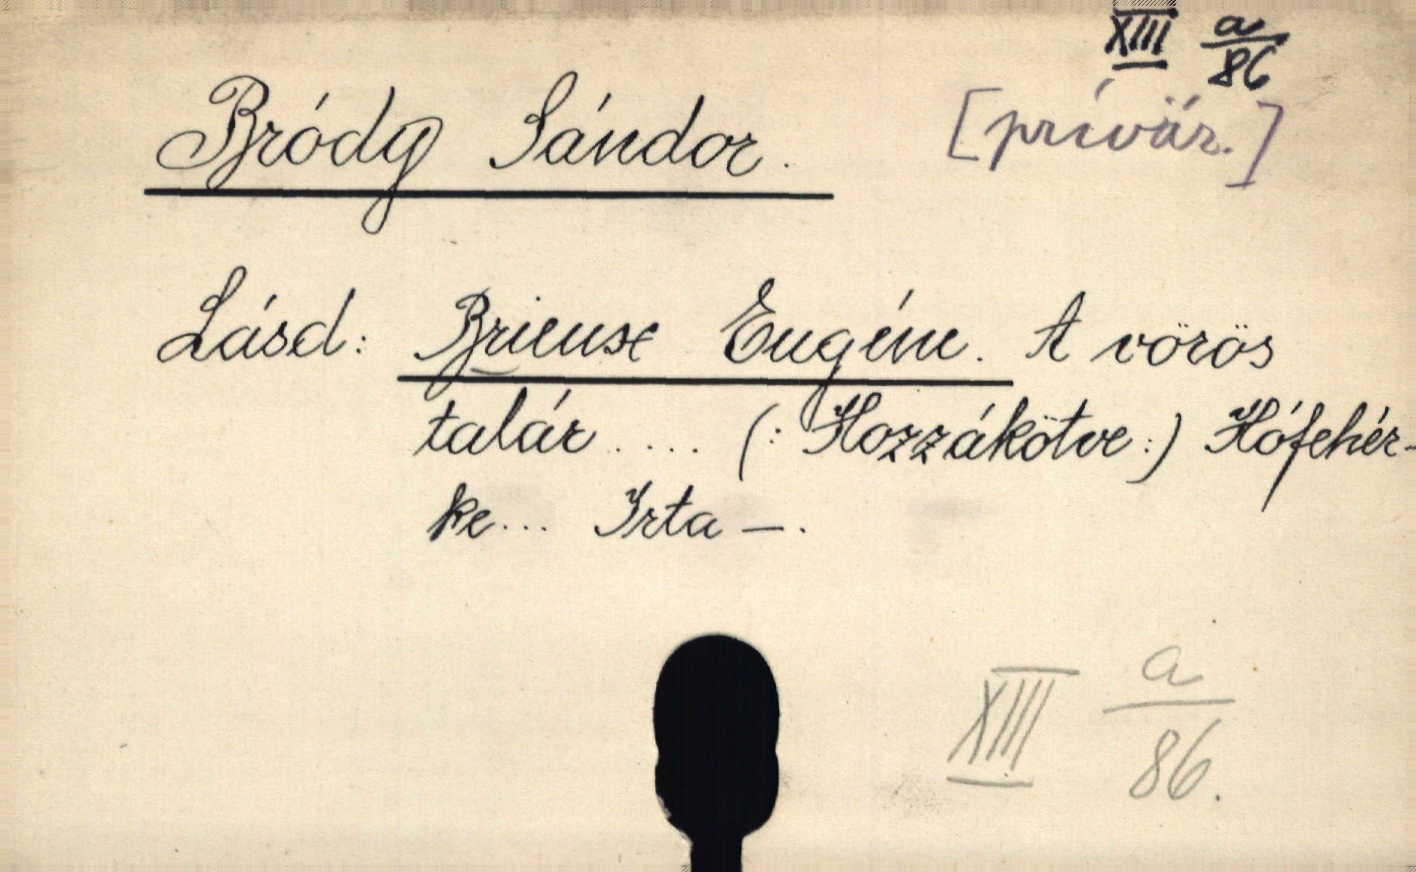 XIII a/86
Bródy Sándor.
[prívár.]
Lásd: Brieuse Eugéne. A vörös
talár .... (: Hozzákötve :) Hófehér-
ke... Irta —.
XIII a/86.